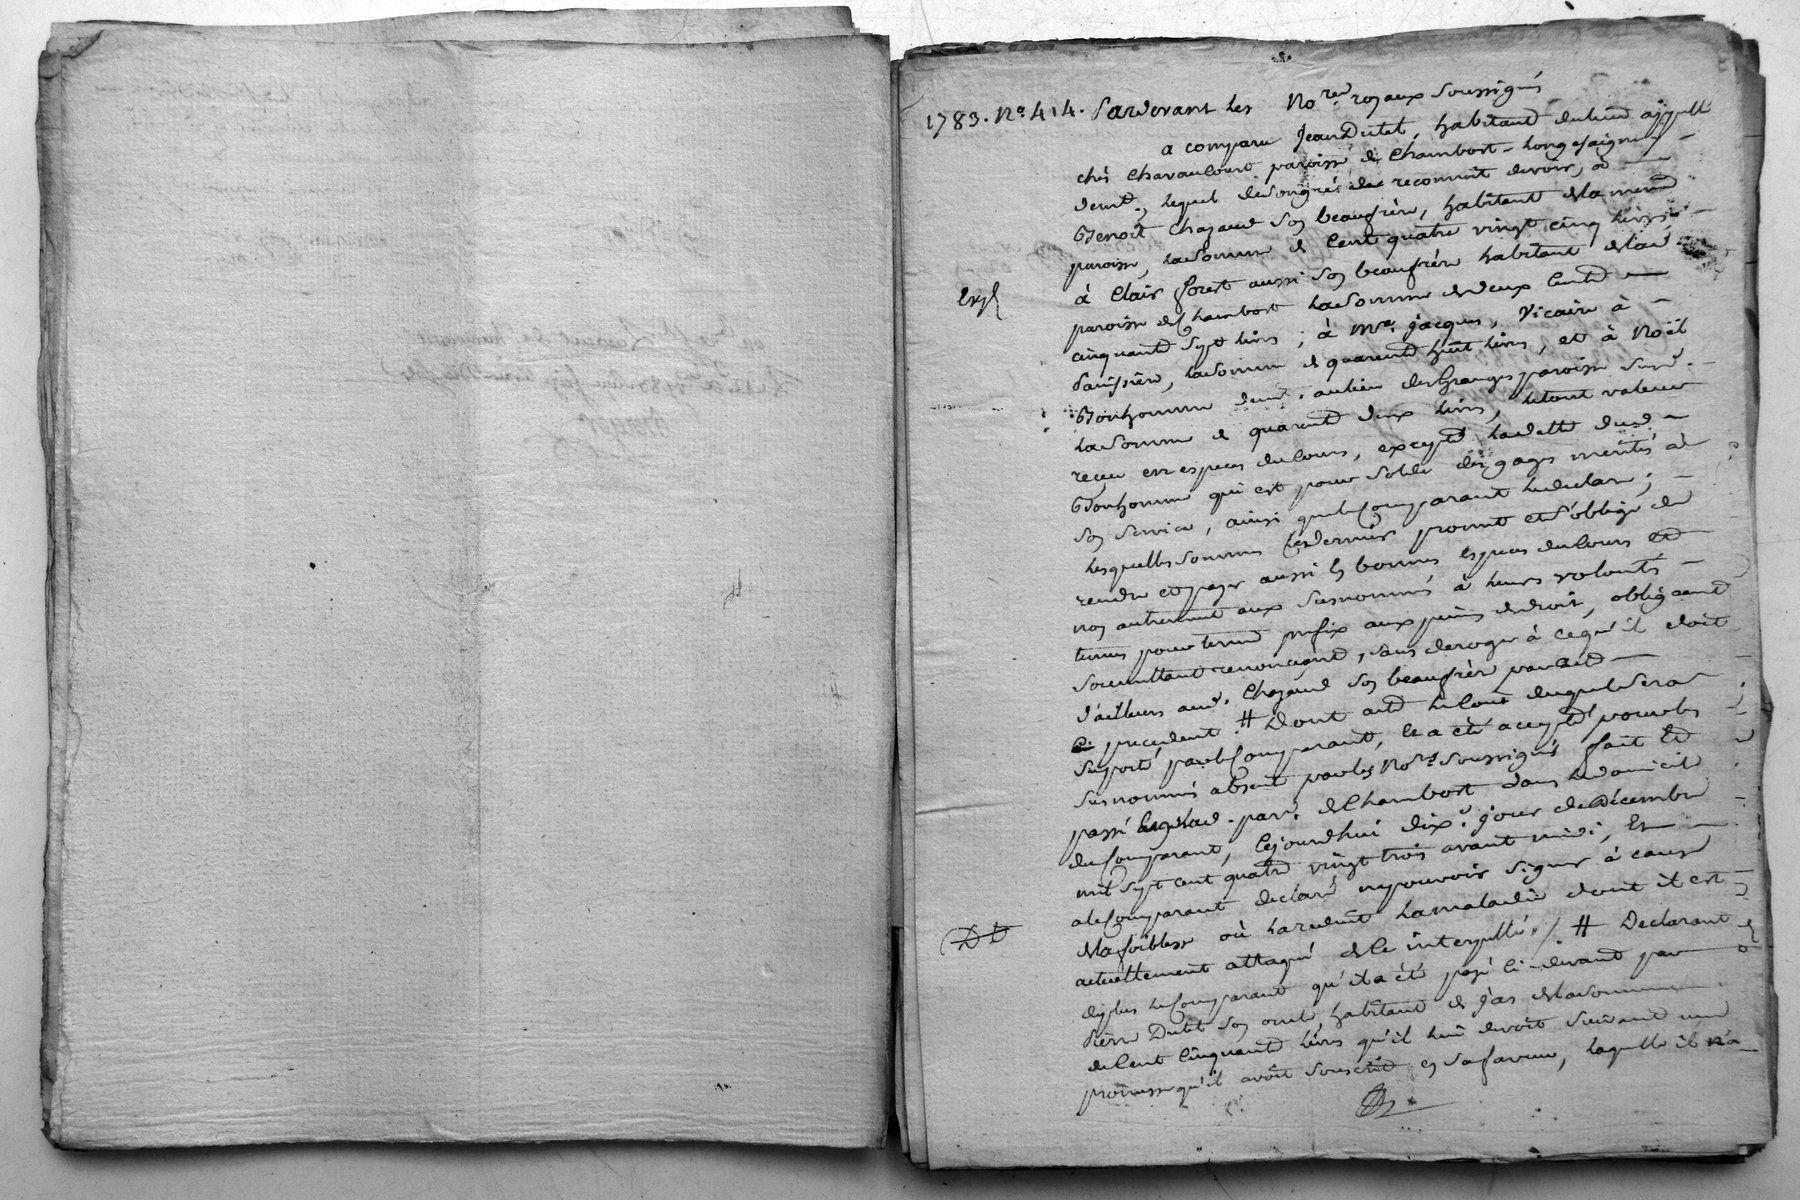 1783. No. 414. Pardevant les Nores. royaux soussignés
a comparu Jean Dutel, habitant du lieu appellé
chés Chavaulourt paroisse de Chambost-Longesaigne y
demt., lequel de son gré a reconnu devoir, à
Benoit Chazaud son beaufrère, habitant de la meme
paroisse, la somme de Cent quatre vingt cinq livres,
à Clair forest aussi son beaufrère habitant de lad.
Expé
paroisse de Chambost la somme de deux Cents
cinquante sept livres ; à Mre. jacques, Vicaire à
Panissière, la somme de quarente huit livres, et à Noël
Bonhomme demt. au lieu des Granges paroisse susd.
la somme de quarente deux livres, le tout valeur
reçue en espèces du cours, excepté la dette dud.
Bonhomme qui est pour solde des gages mérités à
son service, ainsi que le Comparant le déclare ;
lesquelles sommes ce dernier promet et s'oblige de
rendre et payer aussi en bonnes espèces du Cours et
non autrement aux susnommés à leurs volontés
tenus pour terme prefix aux peines de droit, obligeant
soumettant renonçant, sans deroger à ce qu'il doit
d'ailleurs aud. Chazaud son beaufrère par acte
precedent. # Dont acte le Cout duquel sera
suporté par le Comparant, et a été accepté pour les
susnommés absent par les Nores. soussignés fait et
passé aud. par. de Chambost dans le domicile
du Comparant, Cejourdhui dixe. jour de Décembre
mil sept cent quatre vingt trois avant midi, et
a le Comparant declaré ne pouvoir signer à cause
D D
de la foiblesse où la reduit la maladie dont il est
actuellement attaqué de ce interpellé. / # Declarant
de plus le Comparant qu'il a été payé ci-devant par
Pierre Dutel son oncle habitant de Jas de la somme
de Cent Cinquante livres qu'il lui devoit suivant une
promesse qu'il avoit souscrite en sa faveur, laquelle il n'a